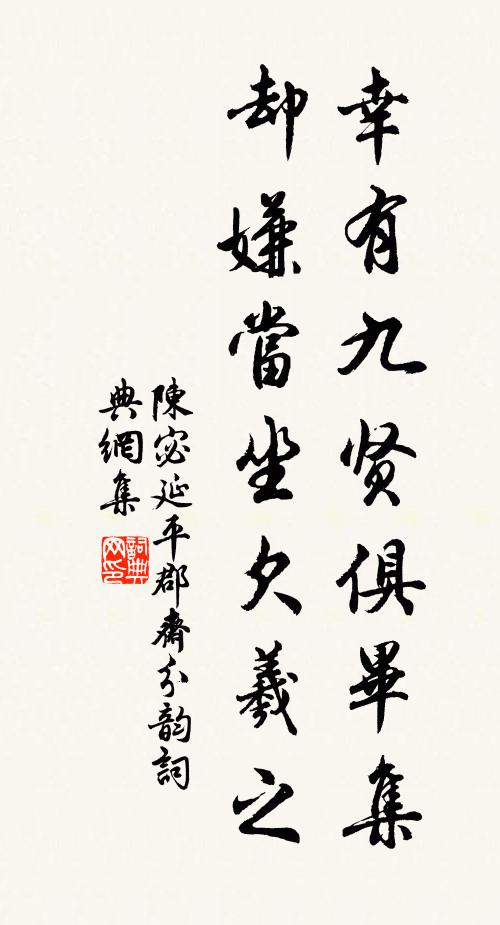 幸有九贤俱畢集
却嫌當坐欠羲之
陳宓延平郡齋分韵詞
典網集
詞典网印